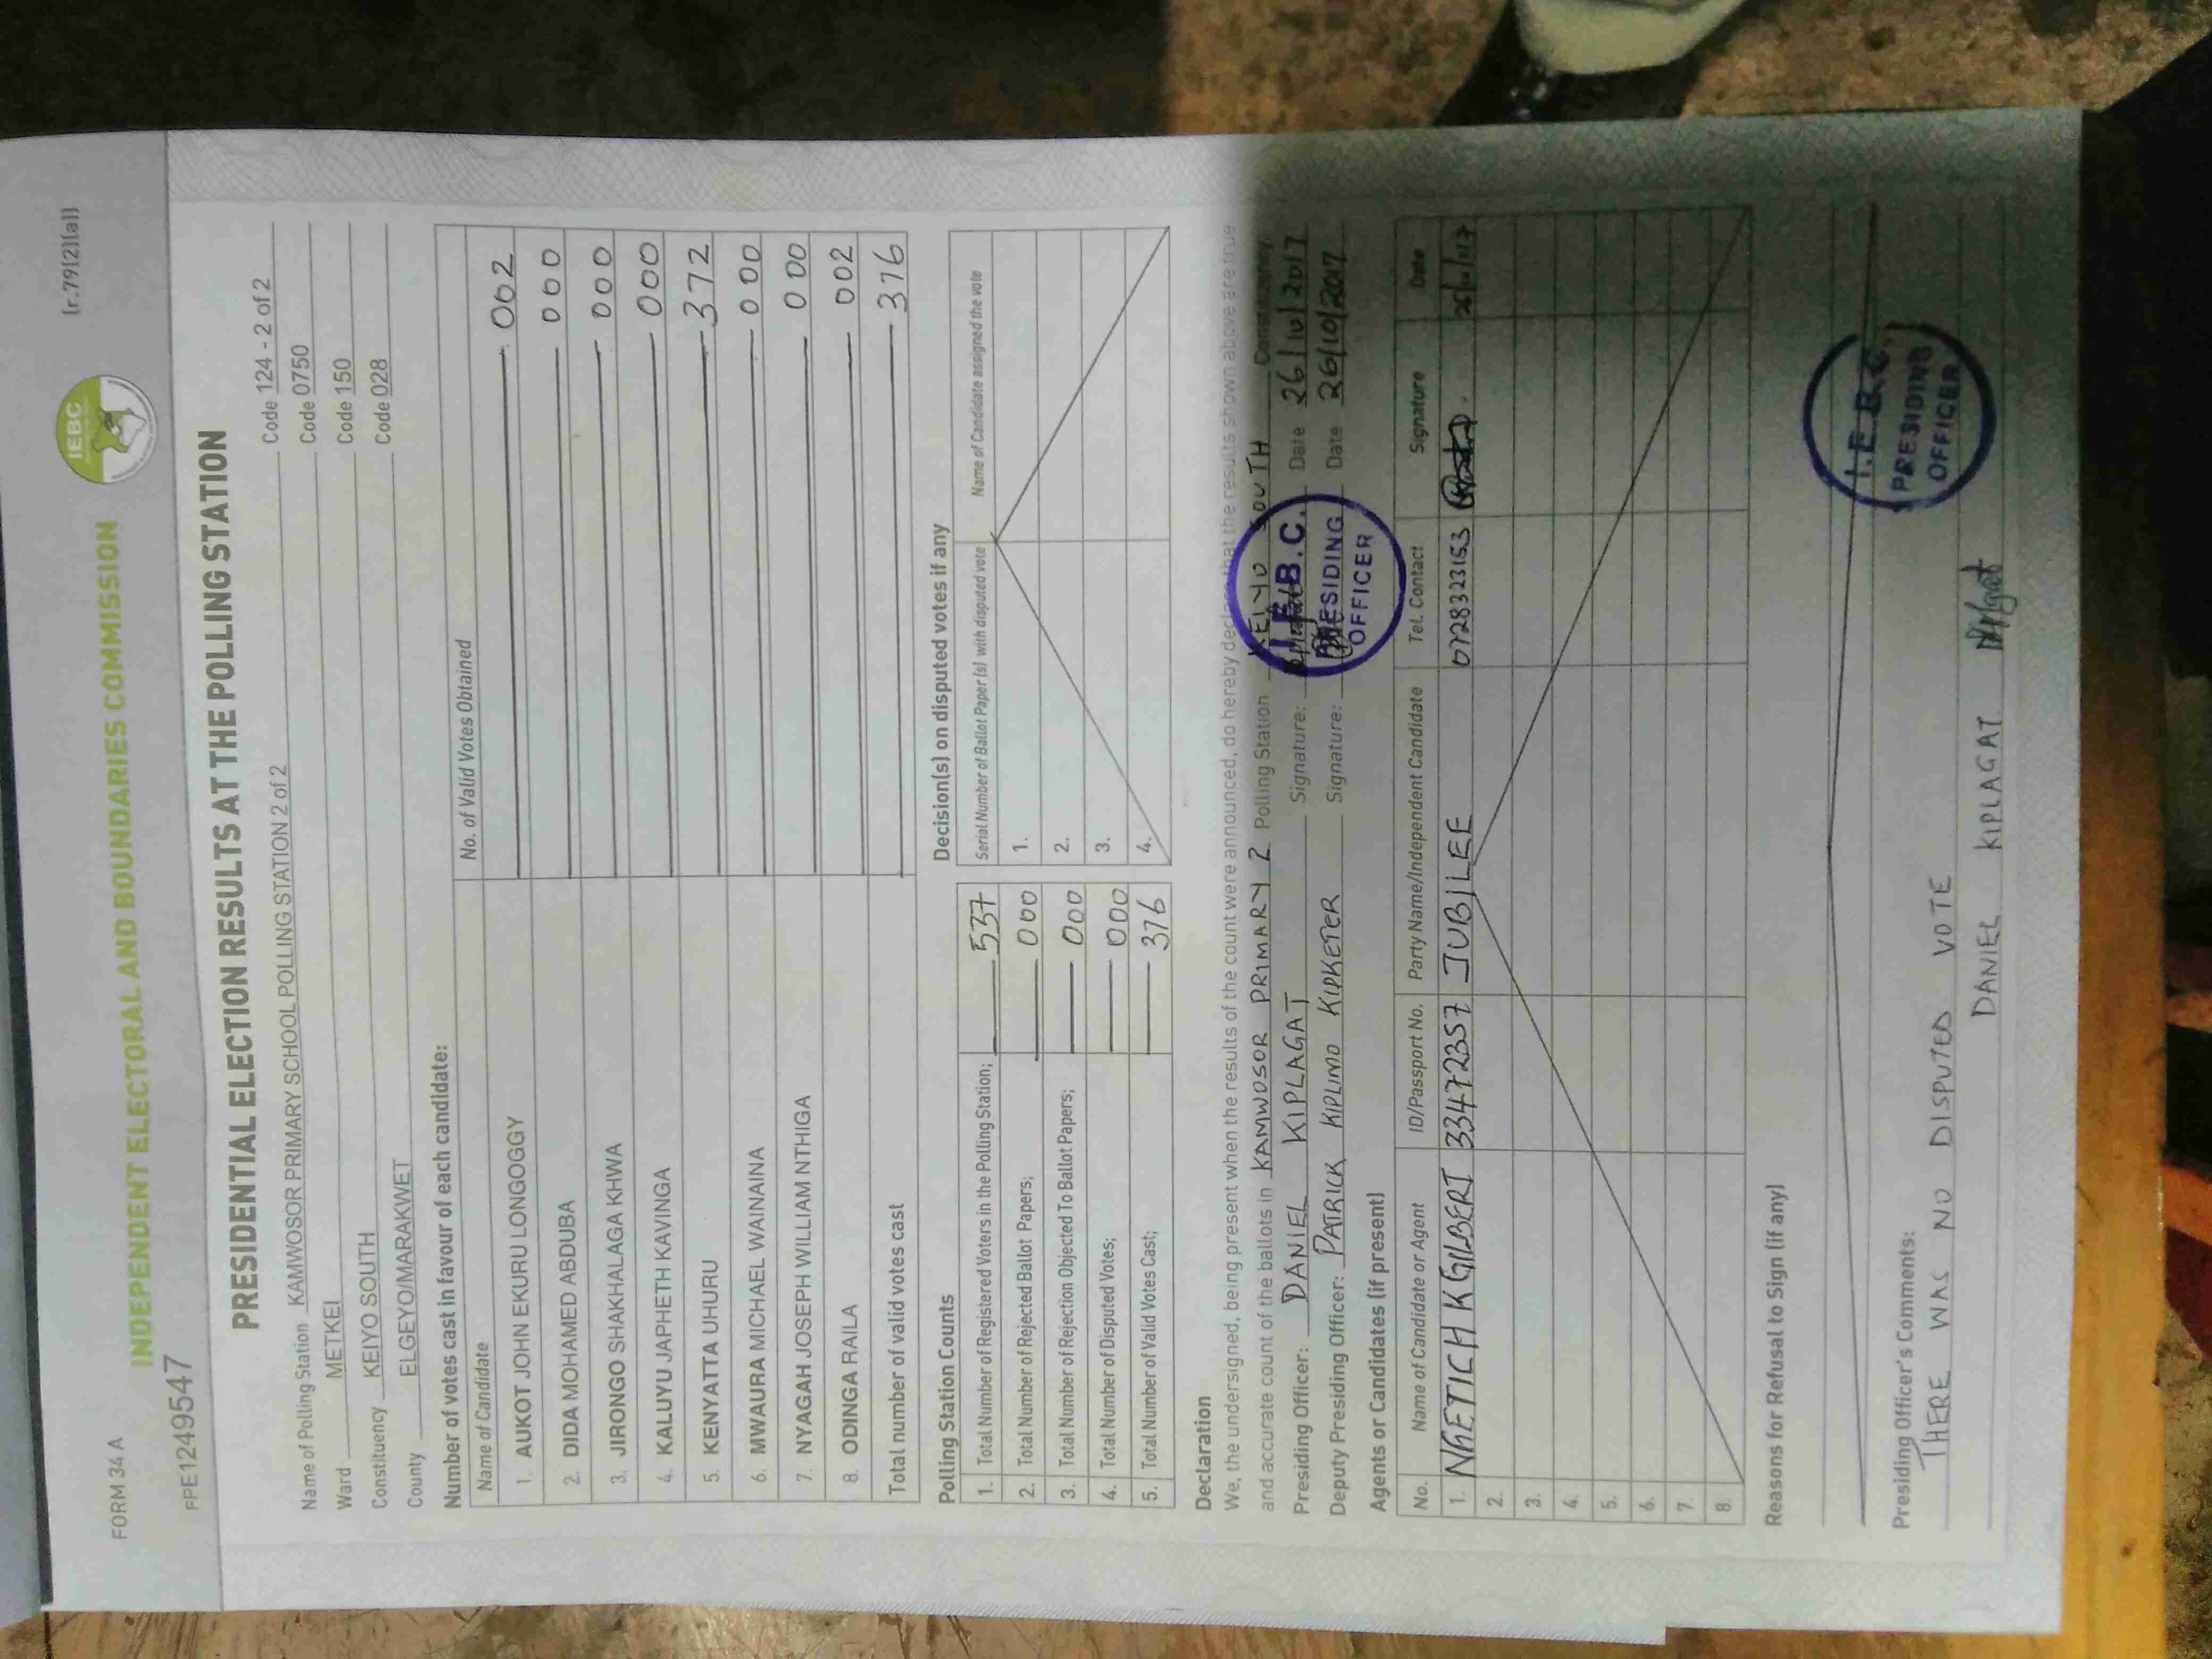 FORM 34 A
(r.79(2)(a))
IEBC
INDEPENDENT ELECTORAL AND BOUNDARIES COMMISSION
FPE1249547
PRESIDENTIAL ELECTION RESULTS AT THE POLLING STATION
Name of Polling Station KAMWOSOR PRIMARY SCHOOL POLLING STATION 2 of 2 Code 124 - 2 of 2
Ward METKEI Code 0750
Constituency KEIYO SOUTH Code 150
County ELGEYO/MARAKWET Code 028
Number of votes cast in favour of each candidate:
Name of Candidate No. of Valid Votes Obtained
1. AUKOT JOHN EKURU LONGOGGY 002
2. DIDA MOHAMED ABDUBA 000
3. JIRONGO SHAKHALAGA KHWA 000
4. KALUYU JAPHETH KAVINGA 000
5. KENYATTA UHURU 372
6. MWAURA MICHAEL WAINAINA 000
7. NYAGAH JOSEPH WILLIAM NTHIGA 000
8. ODINGA RAILA 002
Total number of valid votes cast 376
Polling Station Counts
1. Total Number of Registered Voters in the Polling Station; 537
2. Total Number of Rejected Ballot Papers; 000
3. Total Number of Rejection Objected To Ballot Papers; 000
4. Total Number of Disputed Votes; 000
5. Total Number of Valid Votes Cast; 376
Decision(s) on disputed votes if any
Serial Number of Ballot Paper (s) with disputed vote Name of Candidate assigned the vote
1.
2.
3.
4.
Declaration
We, the undersigned, being present when the results of the count were announced, do hereby declare that the results shown above are true
and accurate count of the ballots in KAMWOSOR PRIMARY 2 Polling Station KEIYO SOUTH Constituency
Presiding Officer: DANIEL KIPLAGAT Signature: Date 26/10/2017
Deputy Presiding Officer: PATRICK KIPLIMO KIPKETER Signature: Date 26/10/2017
I.E.B.C.
PRESIDING
OFFICER
Agents or Candidates (if present)
No. Name of Candidate or Agent ID/Passport No. Party Name/Independent Candidate Tel. Contact Signature Date
1. NGETICH K GILBERT 33472357 JUBILEE 0728323153 26/10/17
2.
3.
4.
5.
6.
7.
8.
Reasons for Refusal to Sign (if any)
I.E.B.C.
PRESIDING
OFFICER
Presiding Officer's Comments:
THERE WAS NO DISPUTED VOTE
DANIEL KIPLAGAT